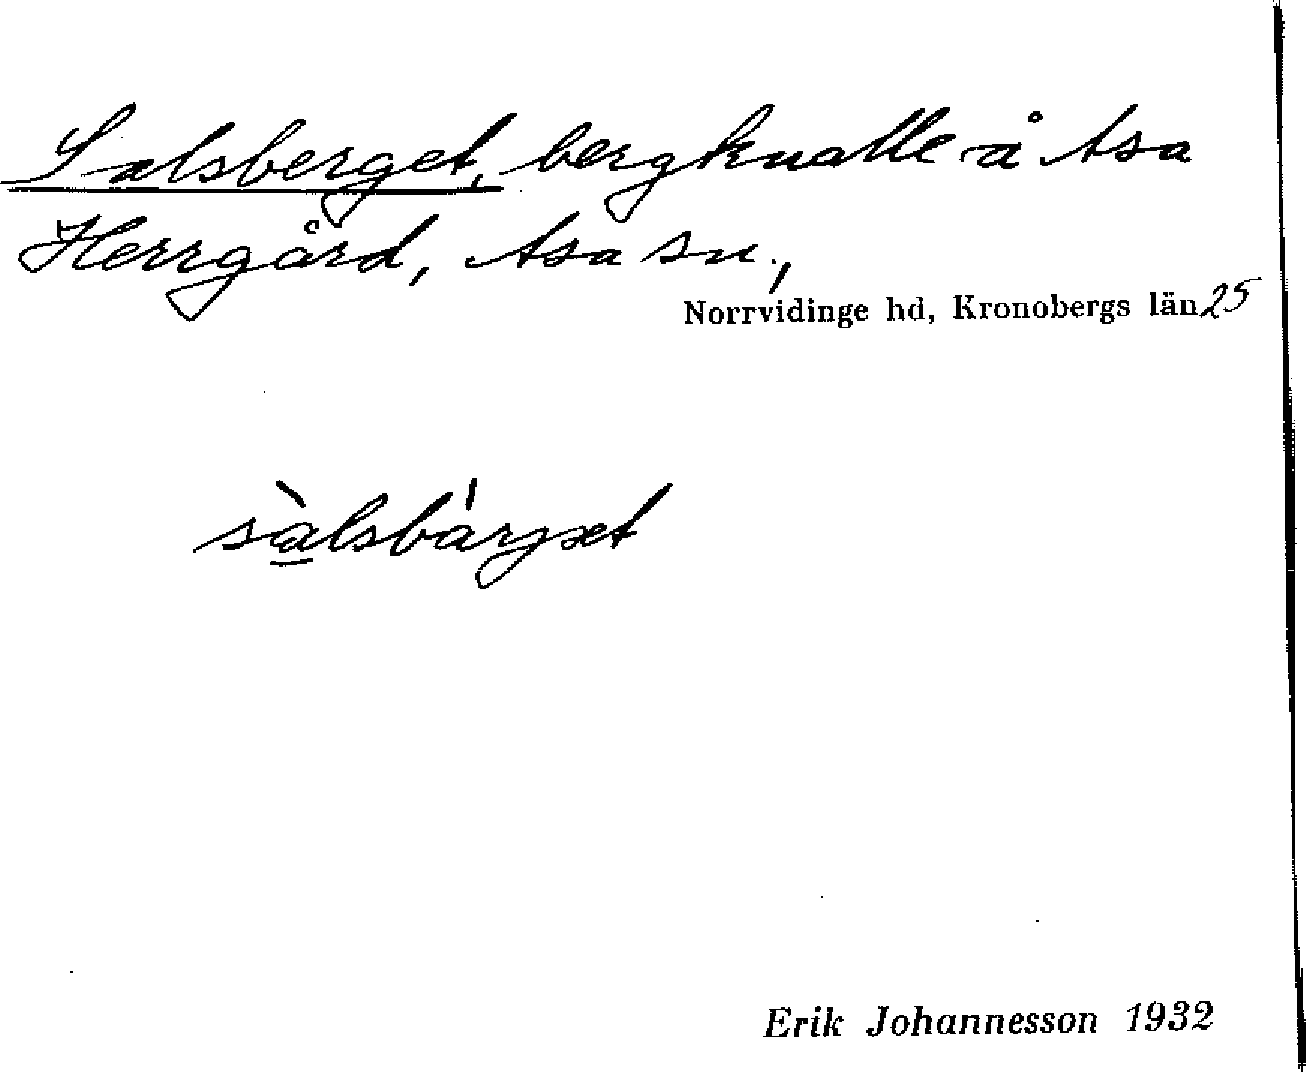 Salsberget, bergknalle å Asa
Herrgård, Asa sn.,
Norrvidinge hd, Kronobergs län 25
sàlsbáryət
Erik Johannesson 1932